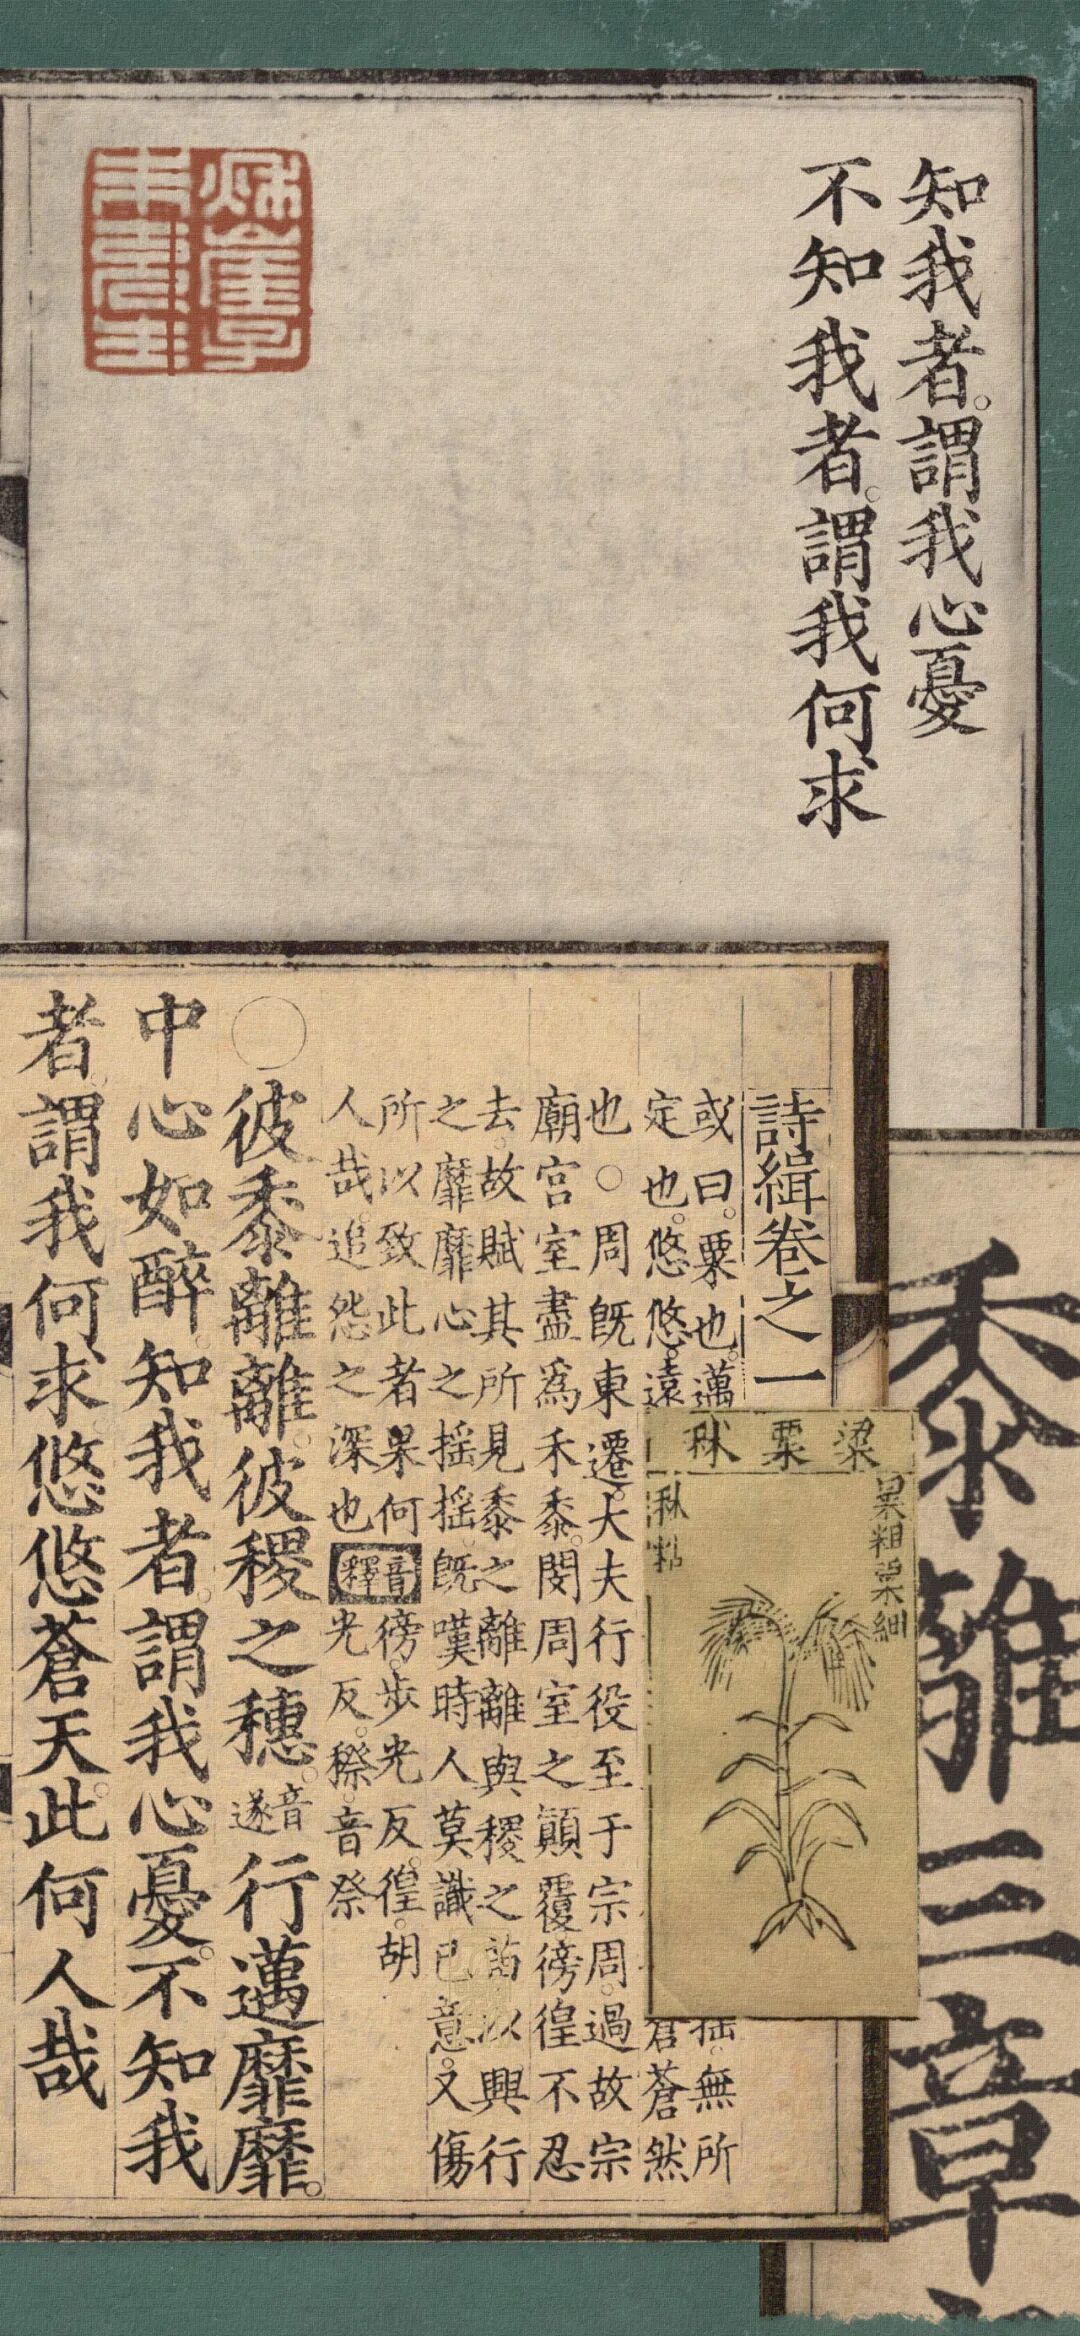 知我者。謂我心憂
不知我者。謂我何求
詩緝卷之一
或曰。粟也。邁
揺。無所
定也。悠悠。遠
蒼。蒼然
也○周既東遷。大夫行役至于宗周。過故宗
廟宮室盡爲禾黍。閔周室之顛覆徬徨不忍
去。故賦其所見黍之離離與稷之苗以興行
之靡靡心之揺揺。既嘆時人莫識已意。又傷
所以致此者果何
人哉。追怨之深也
釋音
徬。步光反。徨。胡
光反。穄。音祭
○彼黍離離。彼稷之穗。音遂行邁靡靡。
中心如醉。知我者。謂我心憂。不知我
者。謂我何求。悠悠蒼天。此何人哉
粱粟秫
秫粘
黍離三章